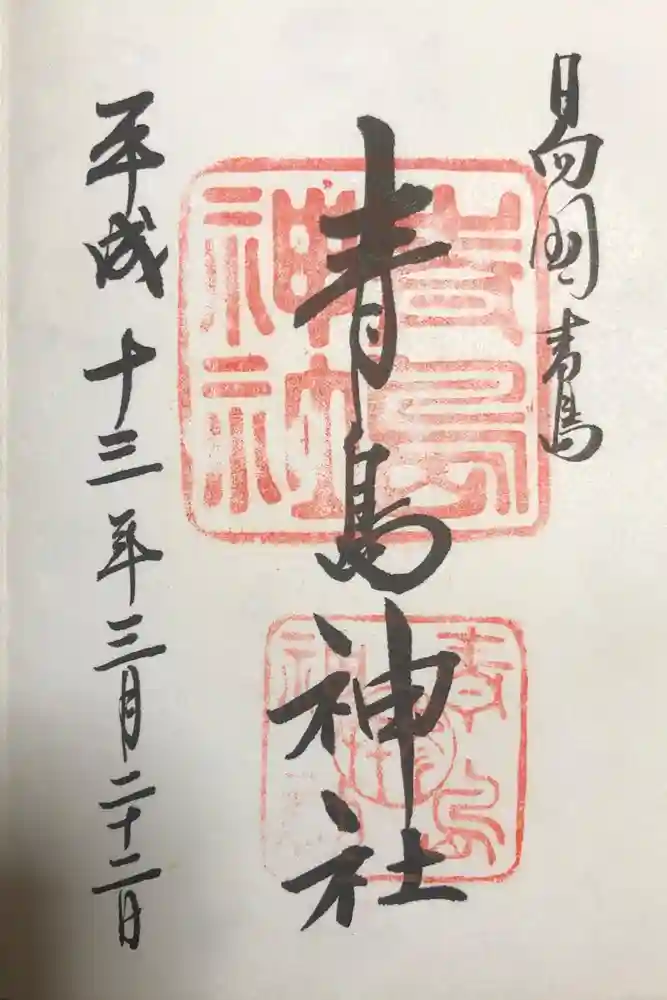 日向国 青島
青島神社
平成十三年三月二十二日
青島
神社